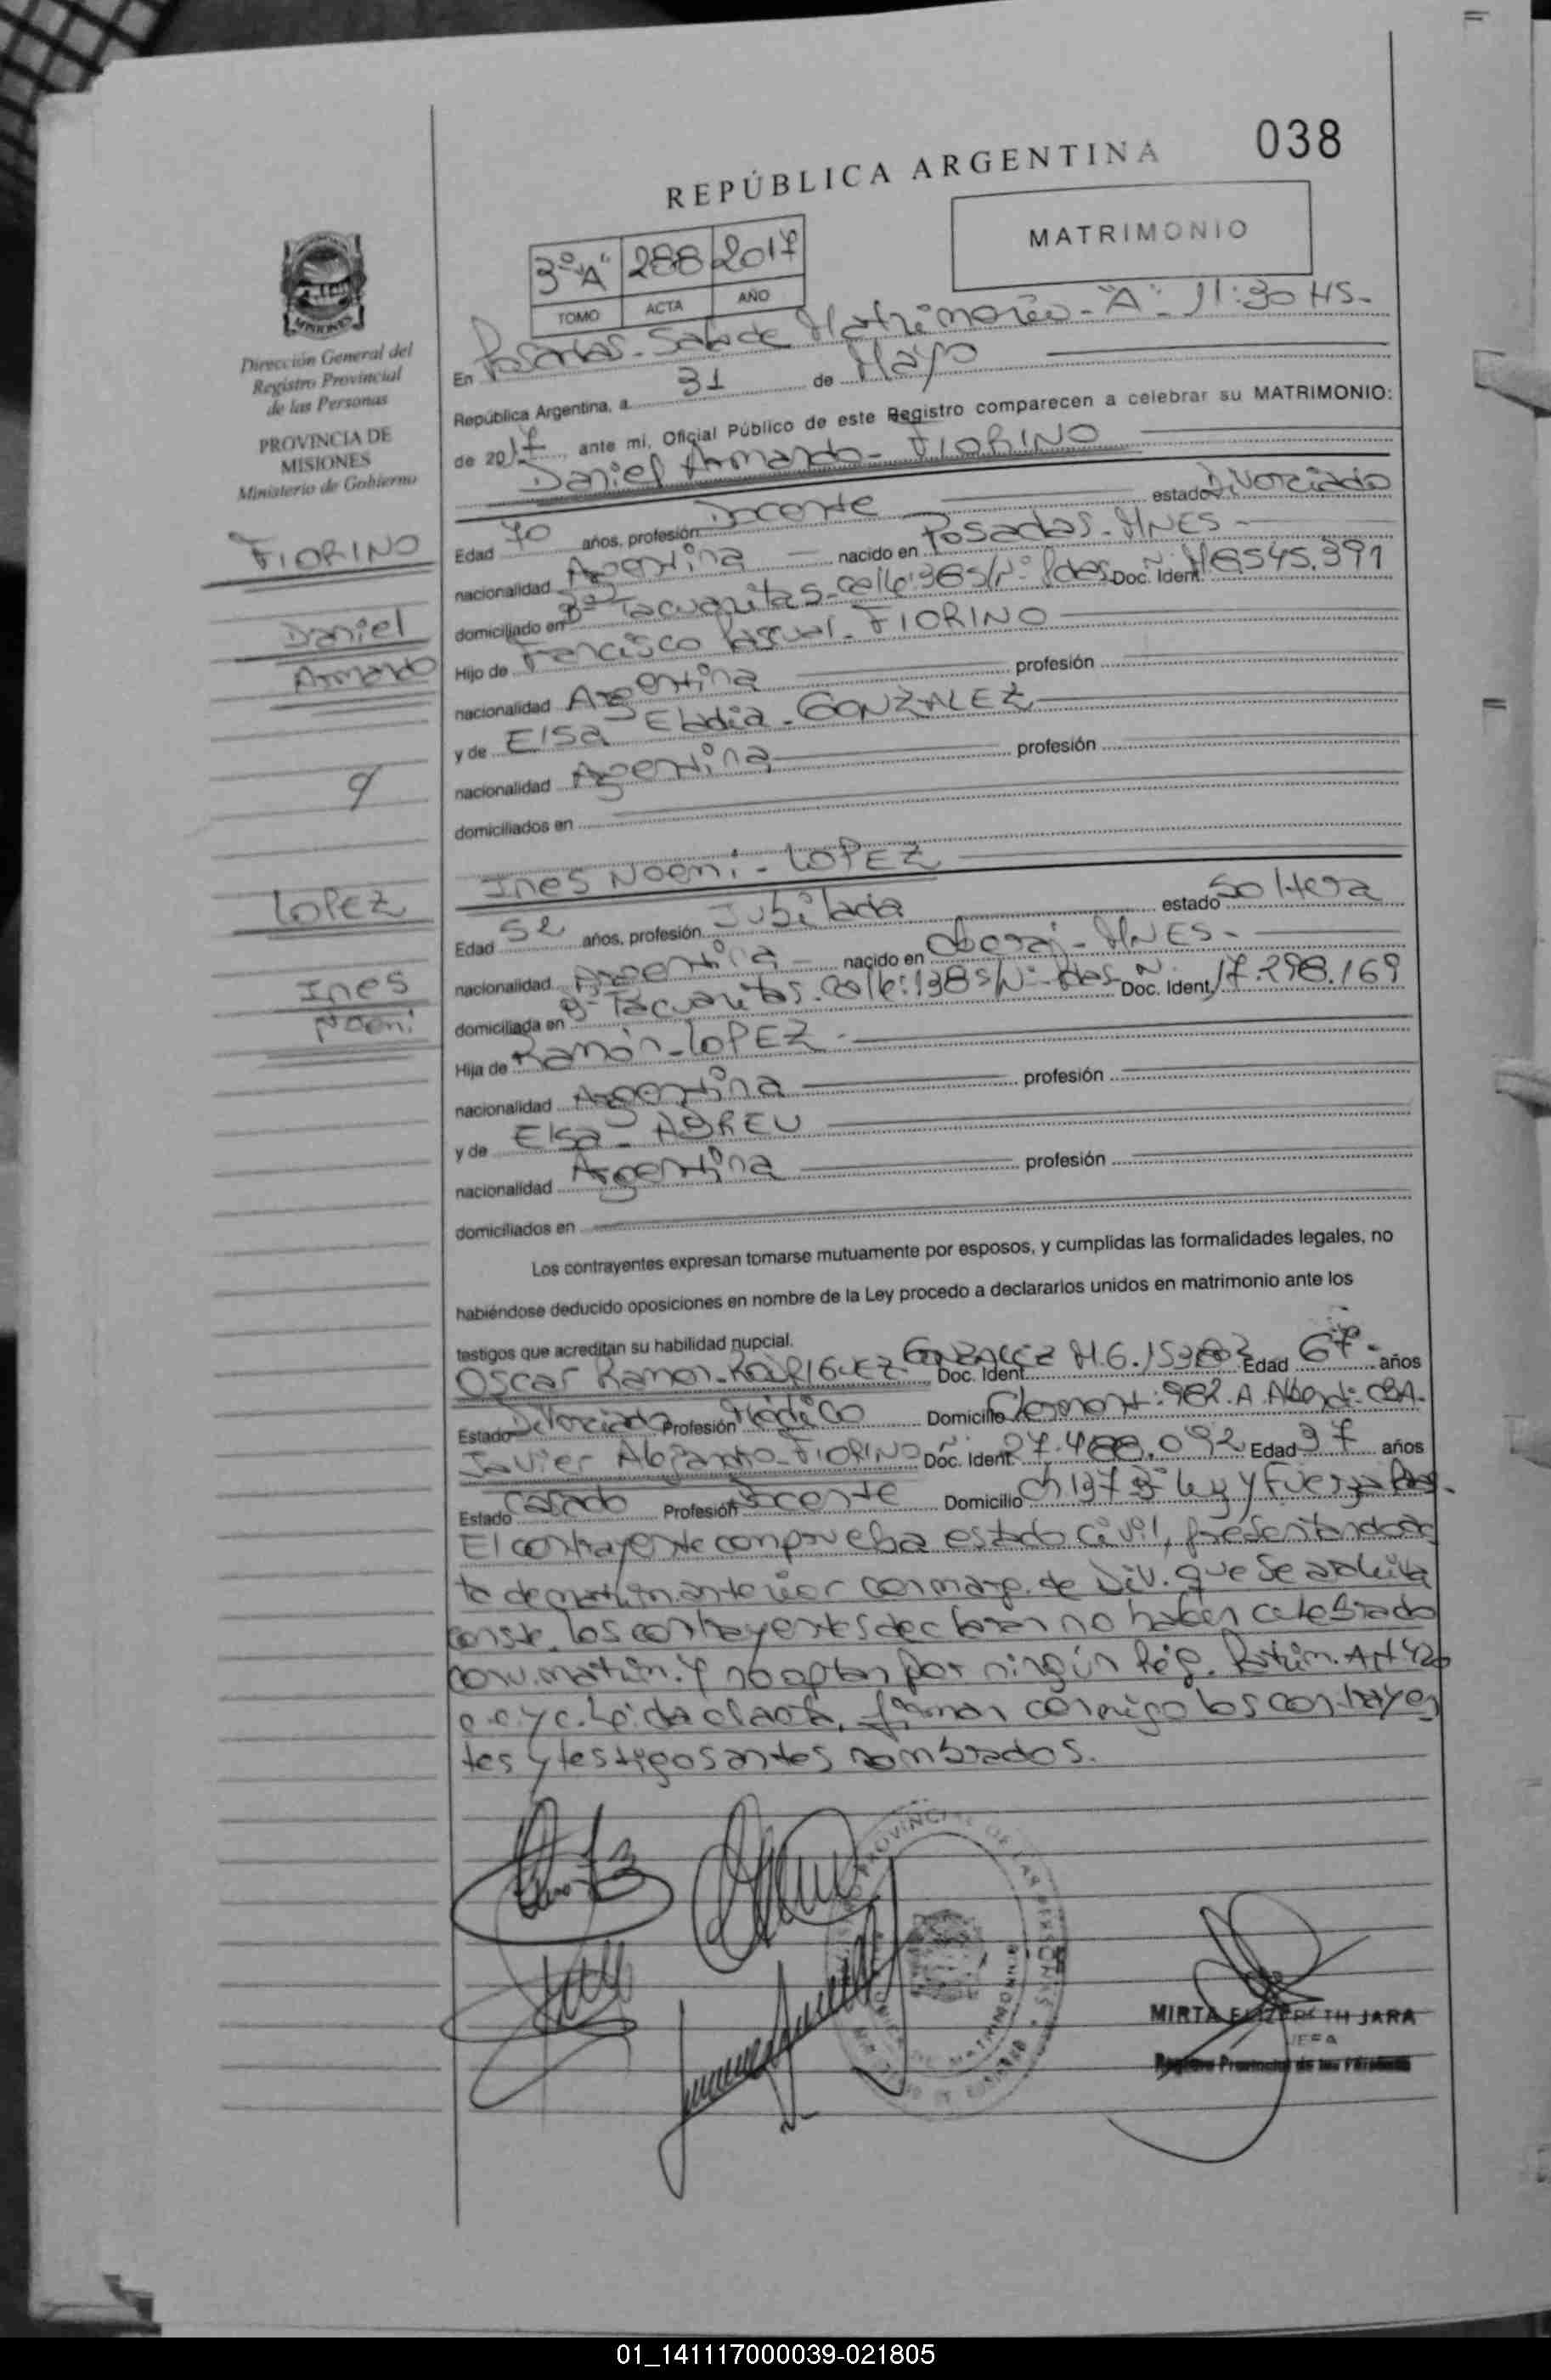 038
REPÚBLICA ARGENTINA
MATRIMONIO
3º "A" 288 2017
TOMO ACTA AÑO
MISIONES
Dirección General del
Registro Provincial
de las Personas
PROVINCIA DE
MISIONES
Ministerio de Gobierno
En Posadas - Sala de Matrimonio - "A" - 11:30 HS.-
República Argentina, a 31 de Mayo
de 2017, ante mi, Oficial Público de este Registro comparecen a celebrar su MATRIMONIO:
Daniel Armando - FIORINO
FIORINO
Daniel
Armando
Edad 70 años, profesión Docente estado Divorciado
nacionalidad Argentina nacido en Posadas - MNES -
domiciliado en Bº Tacuaritas - calle: 138 s/Nº Pdas Doc. Ident. M8.545.391
Hijo de Francisco Pascual - FIORINO
nacionalidad Argentina profesión
y de Elsa Eladia - GONZALEZ
nacionalidad Argentina profesión
domiciliados en
y
LOPEZ
Ines
Noemi
Ines Noemi - LOPEZ
Edad 52 años, profesión Jubilada estado Soltera
nacionalidad Argentina - nacido en Oberá - MNES -
domiciliada en Bº Tacuaritas - calle: 138 s/Nº - Pdas Doc. Ident. 17.298.169
Hija de Ramón - LOPEZ -
nacionalidad Argentina profesión
y de Elsa - ABREU
nacionalidad Argentina profesión
domiciliados en
Los contrayentes expresan tomarse mutuamente por esposos, y cumplidas las formalidades legales, no
habiéndose deducido oposiciones en nombre de la Ley procedo a declararlos unidos en matrimonio ante los
testigos que acreditan su habilidad nupcial.
Oscar Ramon - RODRIGUEZ GONZALEZ Doc. Ident. Edad 67 - años
Estado Divorciado Profesión Médico Domicilio : 982. A. Alberdi - CBA.
Javier Alejandro - FIORINO Doc. Ident. 27.488.092 Edad 37 años
Estado Casado Profesión Docente Domicilio Ch 137 Bº Ley y Fuerza Pdas.
El contrayente comprueba estado civil, presentando ac
ta de matrim. anterior con marg. de Div. que se archiva
conste. los contrayentes declaran no haber celebrado
conv. matrim. y no optan por ningún Rég. Patrim. Art 420
c.c.y c. Leída el acta, firman conmigo los contrayen
tes y testigos antes nombrados.
MIRTA ELIZABETH JARA
JEFA
Registro Provincial de las Personas
01_141117000039-021805